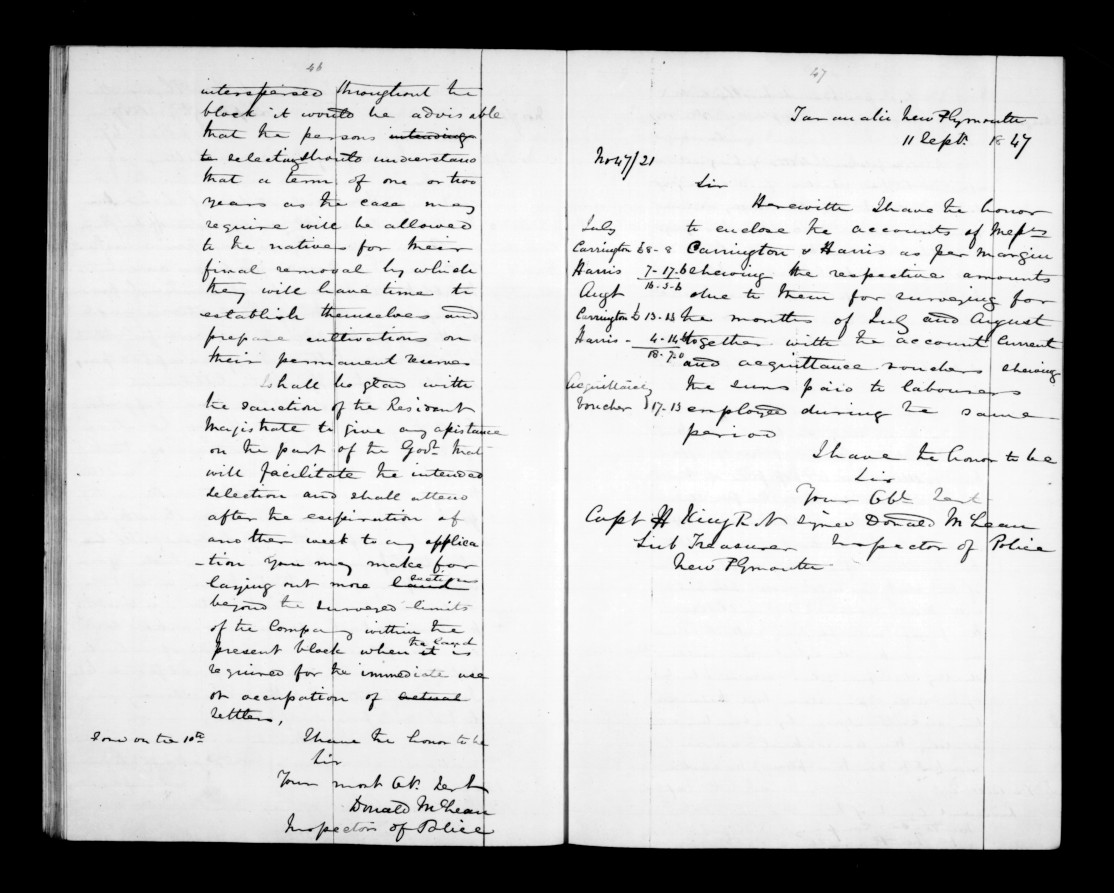 46
interspersed throughout the
block it would be advisable
that the persons intending
to selecting should understand
that a term of one or two
years as the case may
require will be allowed
to the natives for their
final removal by which
they will have time to
establish themselves and
prepare cultivations on
their permanent reserves
I shall be glad with
the sanction of the Resident
Magistrate to give any assistance
on the part of the Govt. that
will facilitate the intended
selection and shall attend
after the expiration of
another week to any applica
-tion you may make for
laying out more land sections
beyond the surveyed limits
of the Company within the
present block when it is the land
required for the immediate use
or occupation of actual
settlers,
done on the 10th
I have the honor to be
Sir
Your most Obt. Servt
Donald McLean
Inspector of Police
47
Taranaki New Plymouth
11 Septr. 1847
No 47/21
Sir
Herewith I have the honor
July to enclose the accounts of Messrs
Carrington £8-8 Carrington & Harris as per margin
Harris 7-17.6 shewing the respective amounts
16-5-6
Augt due to them for surveying for
Carrington £13-13 the months of July and August
Harris - 4-14 together with the account Current
18-7.0 and acquittance vouchers shewing
Acquittance the sums paid to labourers
Voucher } 17-13 employed during the same
period
I have the honor to be
Sir
Your Obt Servt
Capt H King R.N signed Donald McLean
Sub Treasurer Inspector of Police
New Plymouth